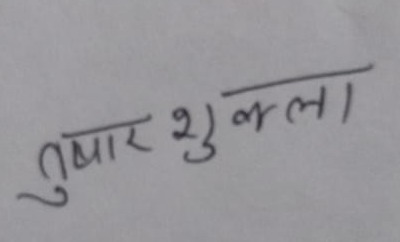 तुषार शुक्ला